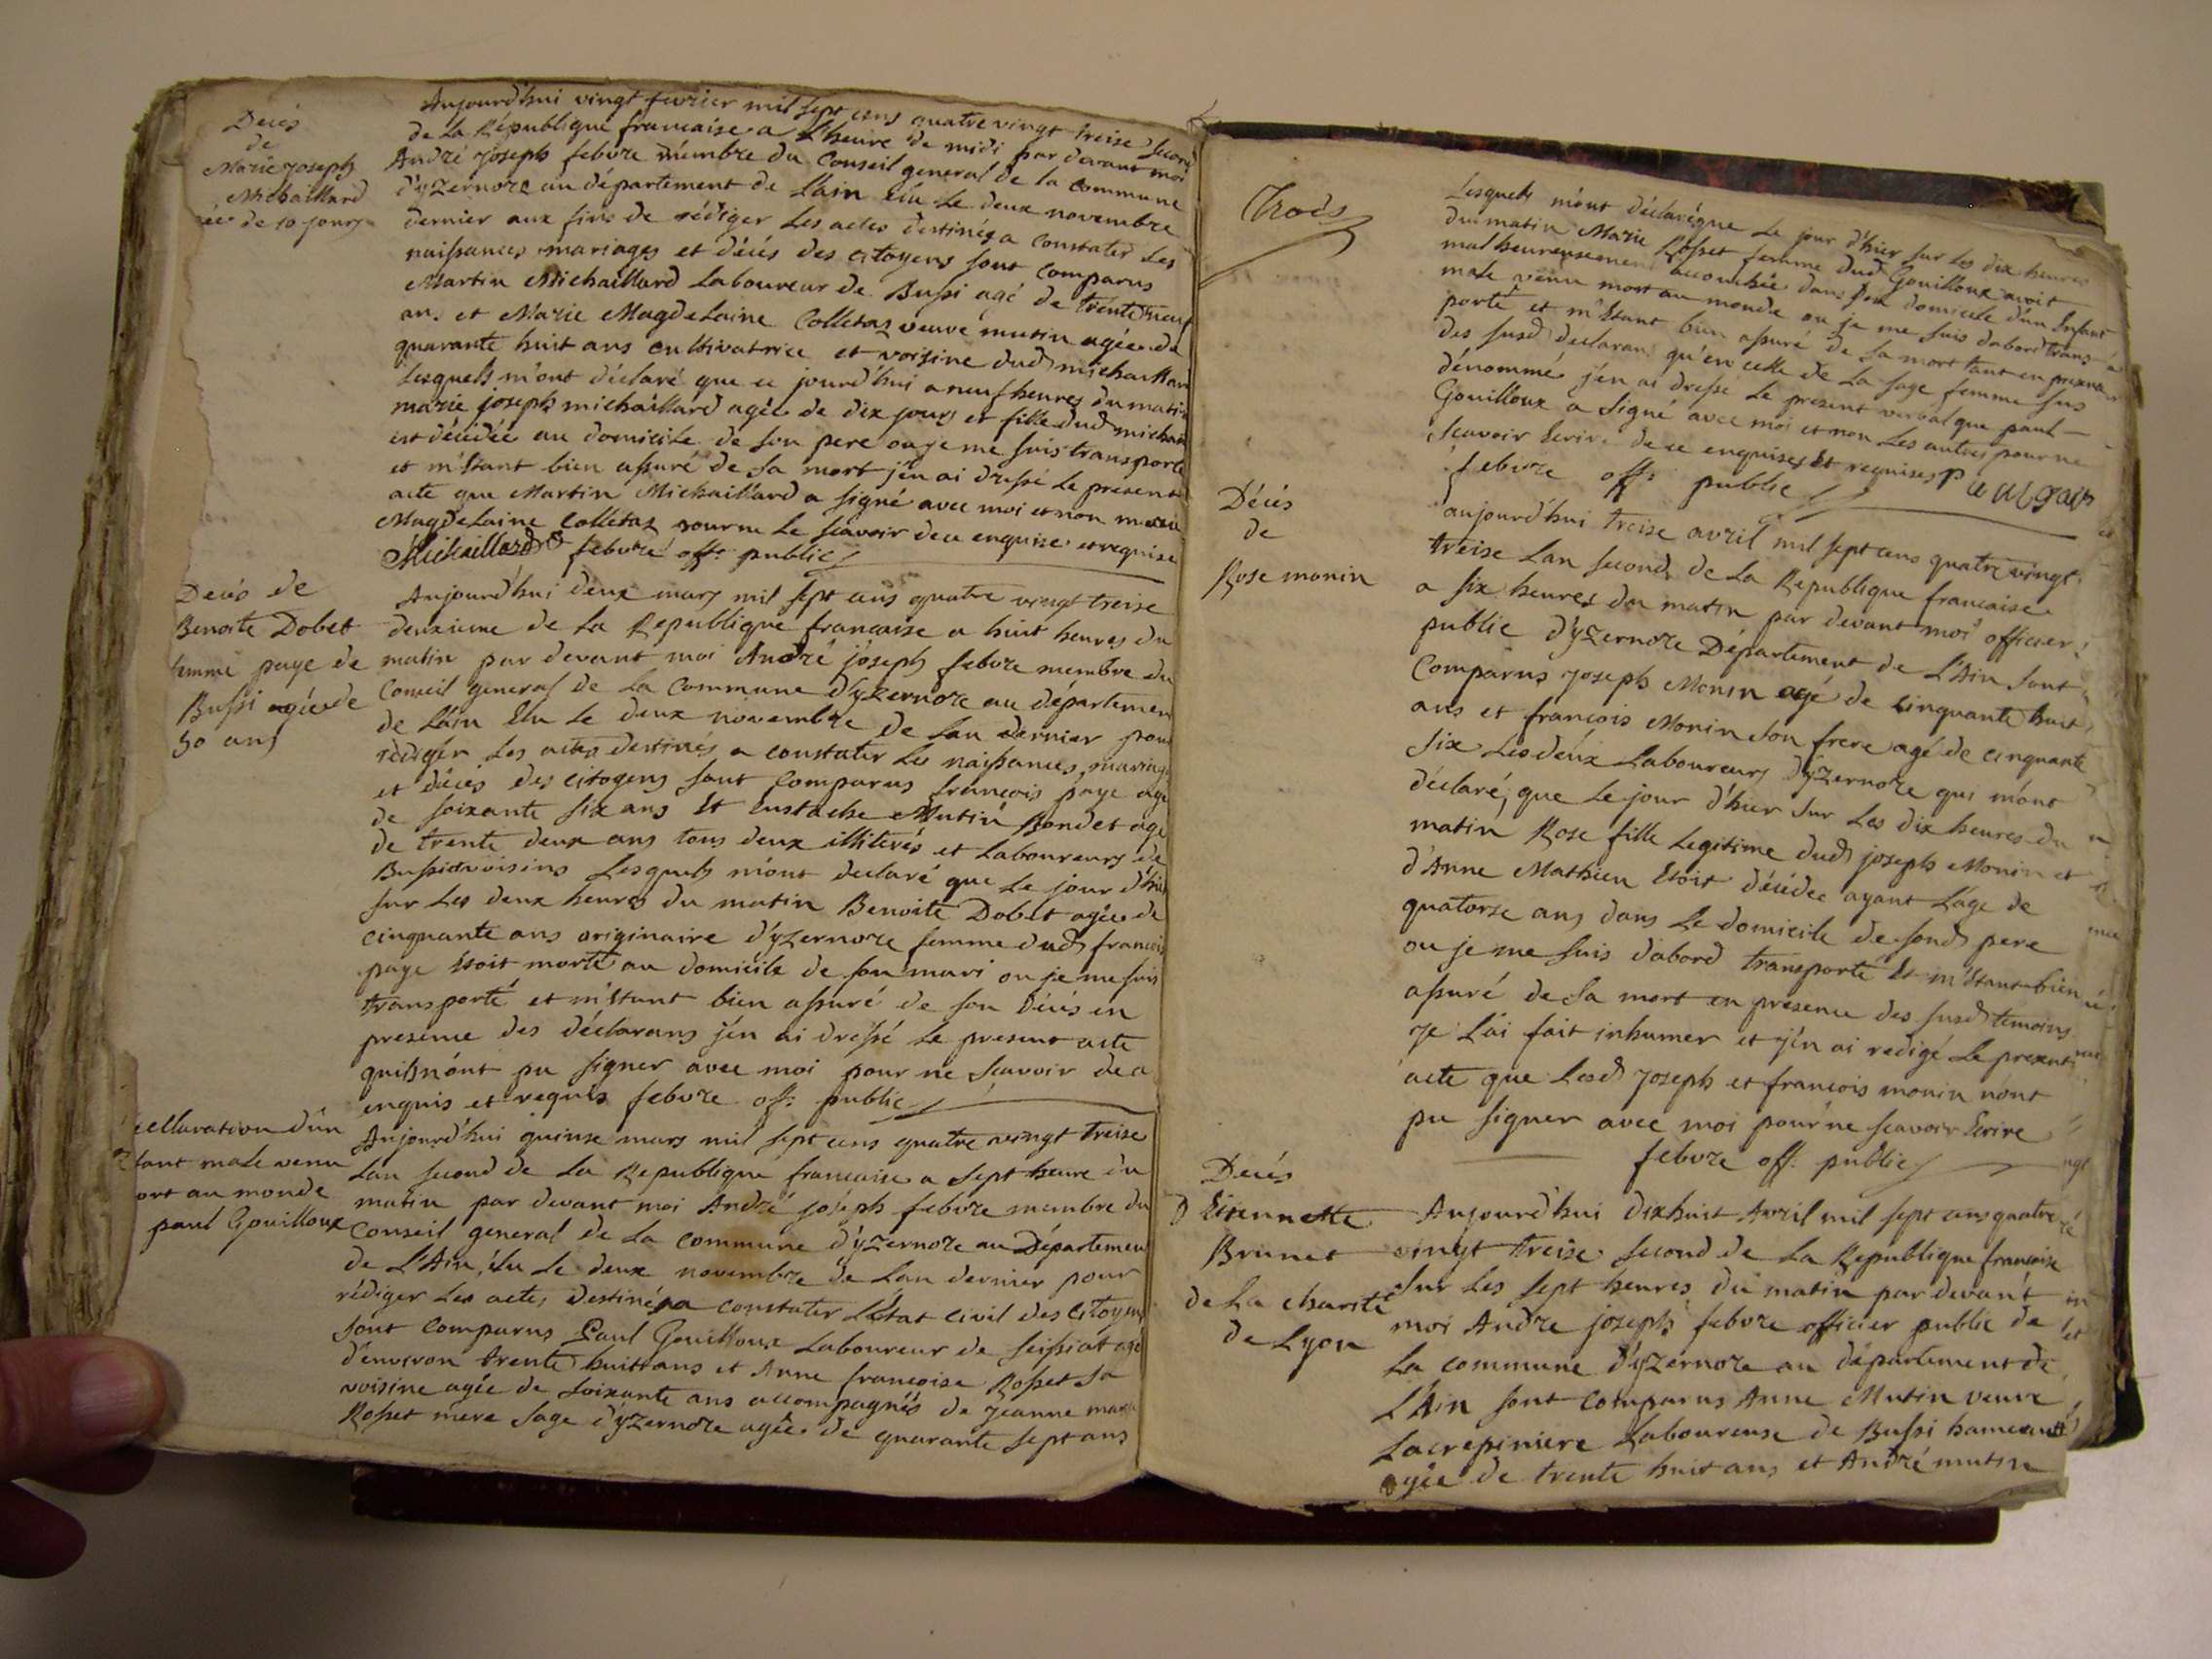 Decés
de
Marie Joseph
Michaillard
de 10 jours
Aujourd'hui vingt fevrier mil sept cens quatre vingt treise second
de La République francaise a L'heure de midi par devant moi
André Joseph febvre mémbre du Conseil general de la Commune
d'yzernore au département de L'ain Elu Le deux novembre
dernier aux fins de rédiger Les actes destinés a Constater Les
naissances mariages et décés des citoyens sont Comparus
Martin Michaillard Laboureur de Bussi agé de trente neuf
ans et Marie Magdelaine Colletaz veuve mutin agée de
quarante huit ans cultivatrice et voisine dud michaillard
Lesquels m'ont déclaré que ce jourd'hui a neuf heures du matin
marie joseph michaillard agée de dix jours et fille dud michail
est décédée au domicile de son pere ou je me suis transporté
et m'étant bien assuré de sa mort j'en ai dressé Le present
acte que Martin Michaillard a signé avec moi et non marie
Magdelaine Colletaz pour ne Le scavoir de ce enquise et requise
Michaillard febvre off. public
Decés de
Benoite Dobet
femme page de
Bussi agée de
50 ans
Aujourd'hui deux mars mil sept cens quatre vingt treise
deuxieme de La Republique francaise a huit heures du
matin par devant moi André joseph febvre membre du
Conseil general de La Commune d'yzernore au départemen
de L'ain Elu Le deux novembre de Lan dernier pour
rédiger Les actes destinés a constater Les naissances, mariage
et décés des citoyens sont Comparus francois page agé
de soixante six ans Et Eustache Mutin Bondet agé
de trente deux ans tous deux illiterés et Laboureurs de
Bussi voisins Lesquels m'ont declaré que Le jour d'hier
sur Les deux heures du matin Benoite Dobet agée de
cinquante ans originaire d'yzernore femme dud francois
page Etoit morte au domicile de son mari ou je me suis
transporté et m'étant bien assuré de son décés en
presence des déclarans j'en ai dressé Le present acte
quils n'ont pu signer avec moi pour ne scavoir de ce
enquis et requis febvre off: public
declaration d'un
Enfant male venu
mort au monde
paul Gouilloux
Aujourd'hui quinse mars mil sept cens quatre vingt treise
Lan second de La Republique francaise a sept heure du
matin par devant moi André joseph febvre membre du
Conseil general de La Commune d'yzernore au Départemen
de L'Ain, élu Le deux novembre de Lan dernier pour
rédiger Les actes destinés a constater L'état civil des citoyens
sont Comparus Paul Gouilloux Laboureur de seissiat agé
d'environ trente huit ans et Anne francoise Rosset sa
voisine agée de soixante ans accompagnés de jeanne marie
Rosset mere sage d'yzernore agée de quarante sept ans
Trois
Lesquels m'ont déclaré que Le jour d'hier sur Les dix heures
du matin Marie Rosset femme dud Gouilloux avoit
malheureusement accouchée dans son domicile d'un Enfant
male venu mort au monde ou je me suis dabord trans
porté et m'étant bien assuré de sa mort tant en presence
des susd declarans qu'en celle de La sage femme sus
dénommé j'en ai dressé Le present verbal que paul
Gouilloux a signé avec moi et non Les autres pour ne
scavoir Ecrire de ce enquises Et requises
febvre off: public
Décés
de
Rose monin
aujourd'hui treise avril mil sept cens quatre vingt
treise Lan second de La Republique francaise
a six heures du matin par devant moi officier
public d'yzernore Département de L'Ain sont
Comparus Joseph Monin agé de cinquante huit
ans et francois Monin son frere agé de cinquante
six Les deux Laboureurs d'yzernore qui m'ont
déclaré, que Le jour d'hier sur Les dix heures du
matin Rose fille Legitime dud joseph Monin et
d'Anne Mathieu Etoit décédée ayant L'age de
quatorse ans dans Le domicile de sond pere
ou je me suis dabord transporté Et m'étant bien
assuré de sa mort en presence des susd temoins
je L'ai fait inhumer et j'en ai redigé Le present
acte que Lesd Joseph et francois monin nont
pu signer avec moi pour ne scavoir Ecrire
febvre off. public
Decés
d Etiennette
Brunet
de La charité
de Lyon
Aujourd'hui dixhuit Avril mil sept cens quatre
vingt treise second de La Republique francaise
sur Les sept heures du matin par devant
moi André joseph febvre officier public de
La commune d'yzernore au département de
L'Ain sont comparus Anne Mutin veuve
Lacrepiniere Laboureuse de Bussi hameau
agée de trente huit ans et André mutin